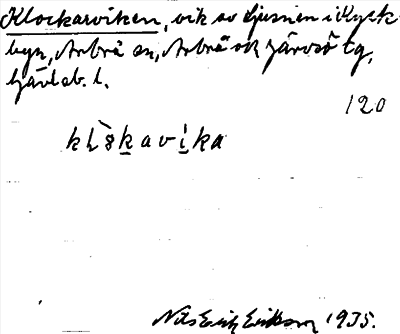 Klockarviken, vik av Ljusnan i Kyrk-
byn, Arbrå sn, Arbrå och Järvsö tg,
Gävleb. l.
120
Nils Erik Eriksson 1935.